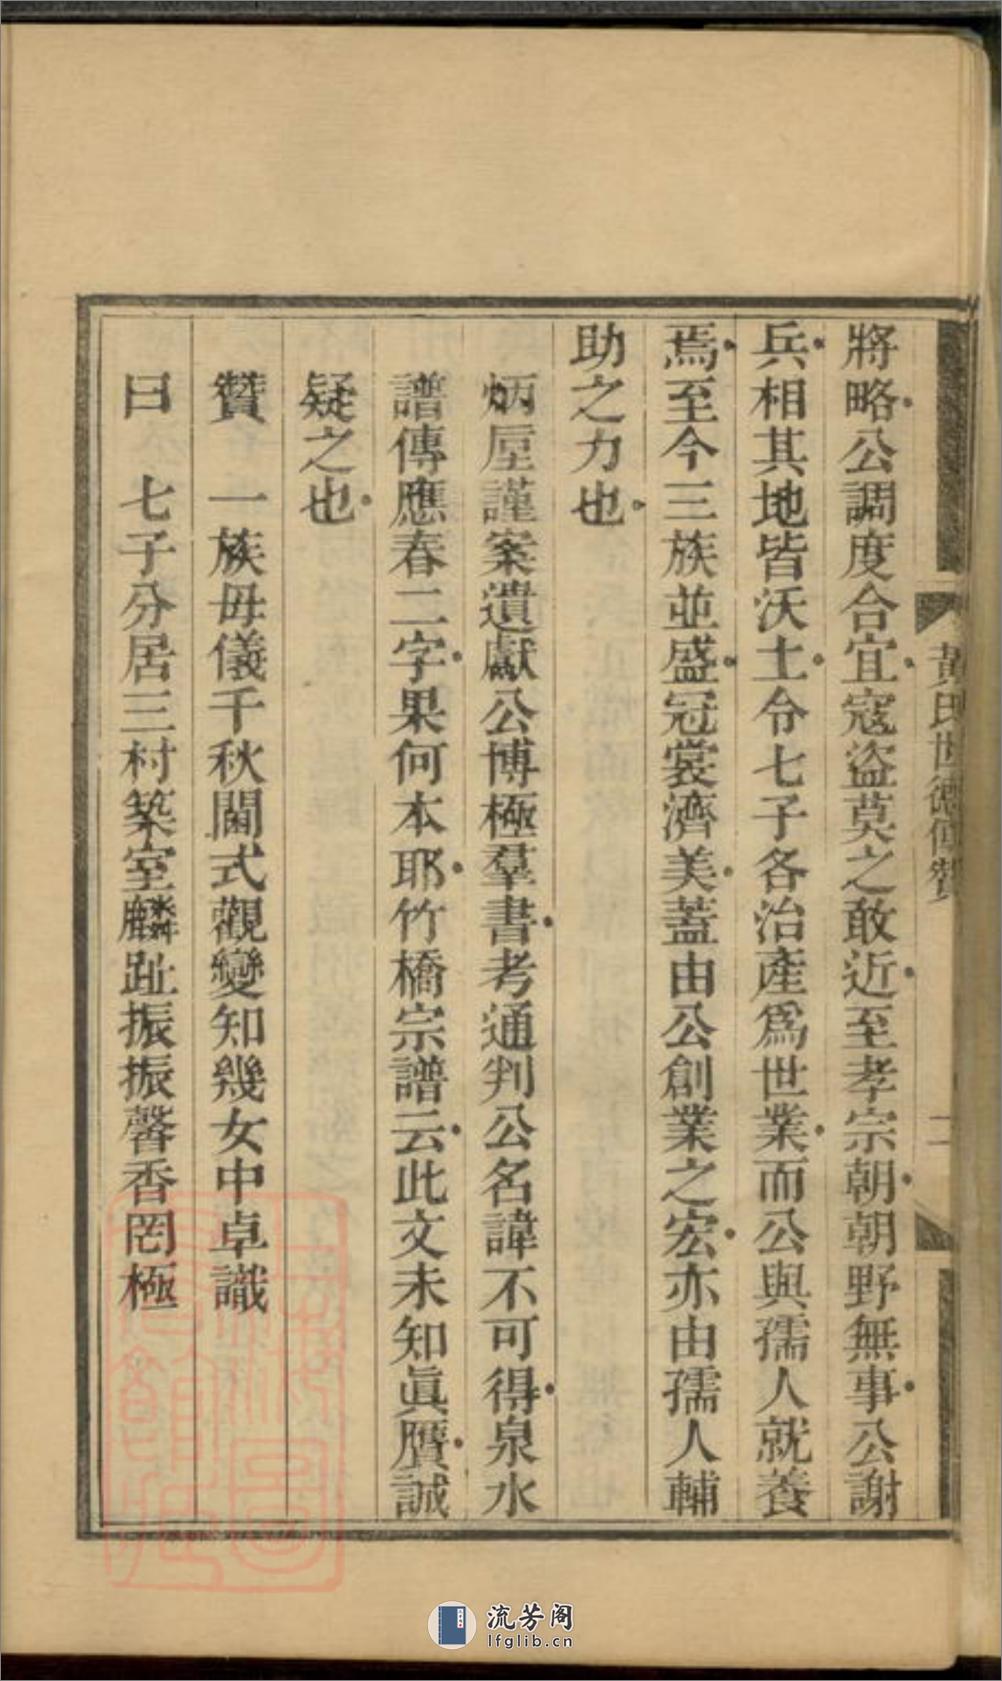 黃氏世德傳贊
二
將略公調度合宜寇盜莫之敢近至孝宗朝朝野無事公謝
兵相其地皆沃土令七子各治產爲世業而公與孺人就養
焉至今三族並盛冠裳濟美蓋由公創業之宏亦由孺人輔
助之力也
炳垕謹案遺獻公博極羣書考通判公名諱不可得泉水
譜傳應春二字果何本耶竹橋宗譜云此文未知眞贋誠
疑之也
贊　一族毋儀千秋閫式觀變知幾女中卓識
曰　七子分居三村築室麟趾振振馨香罔極
流芳阁
lfglib.cn